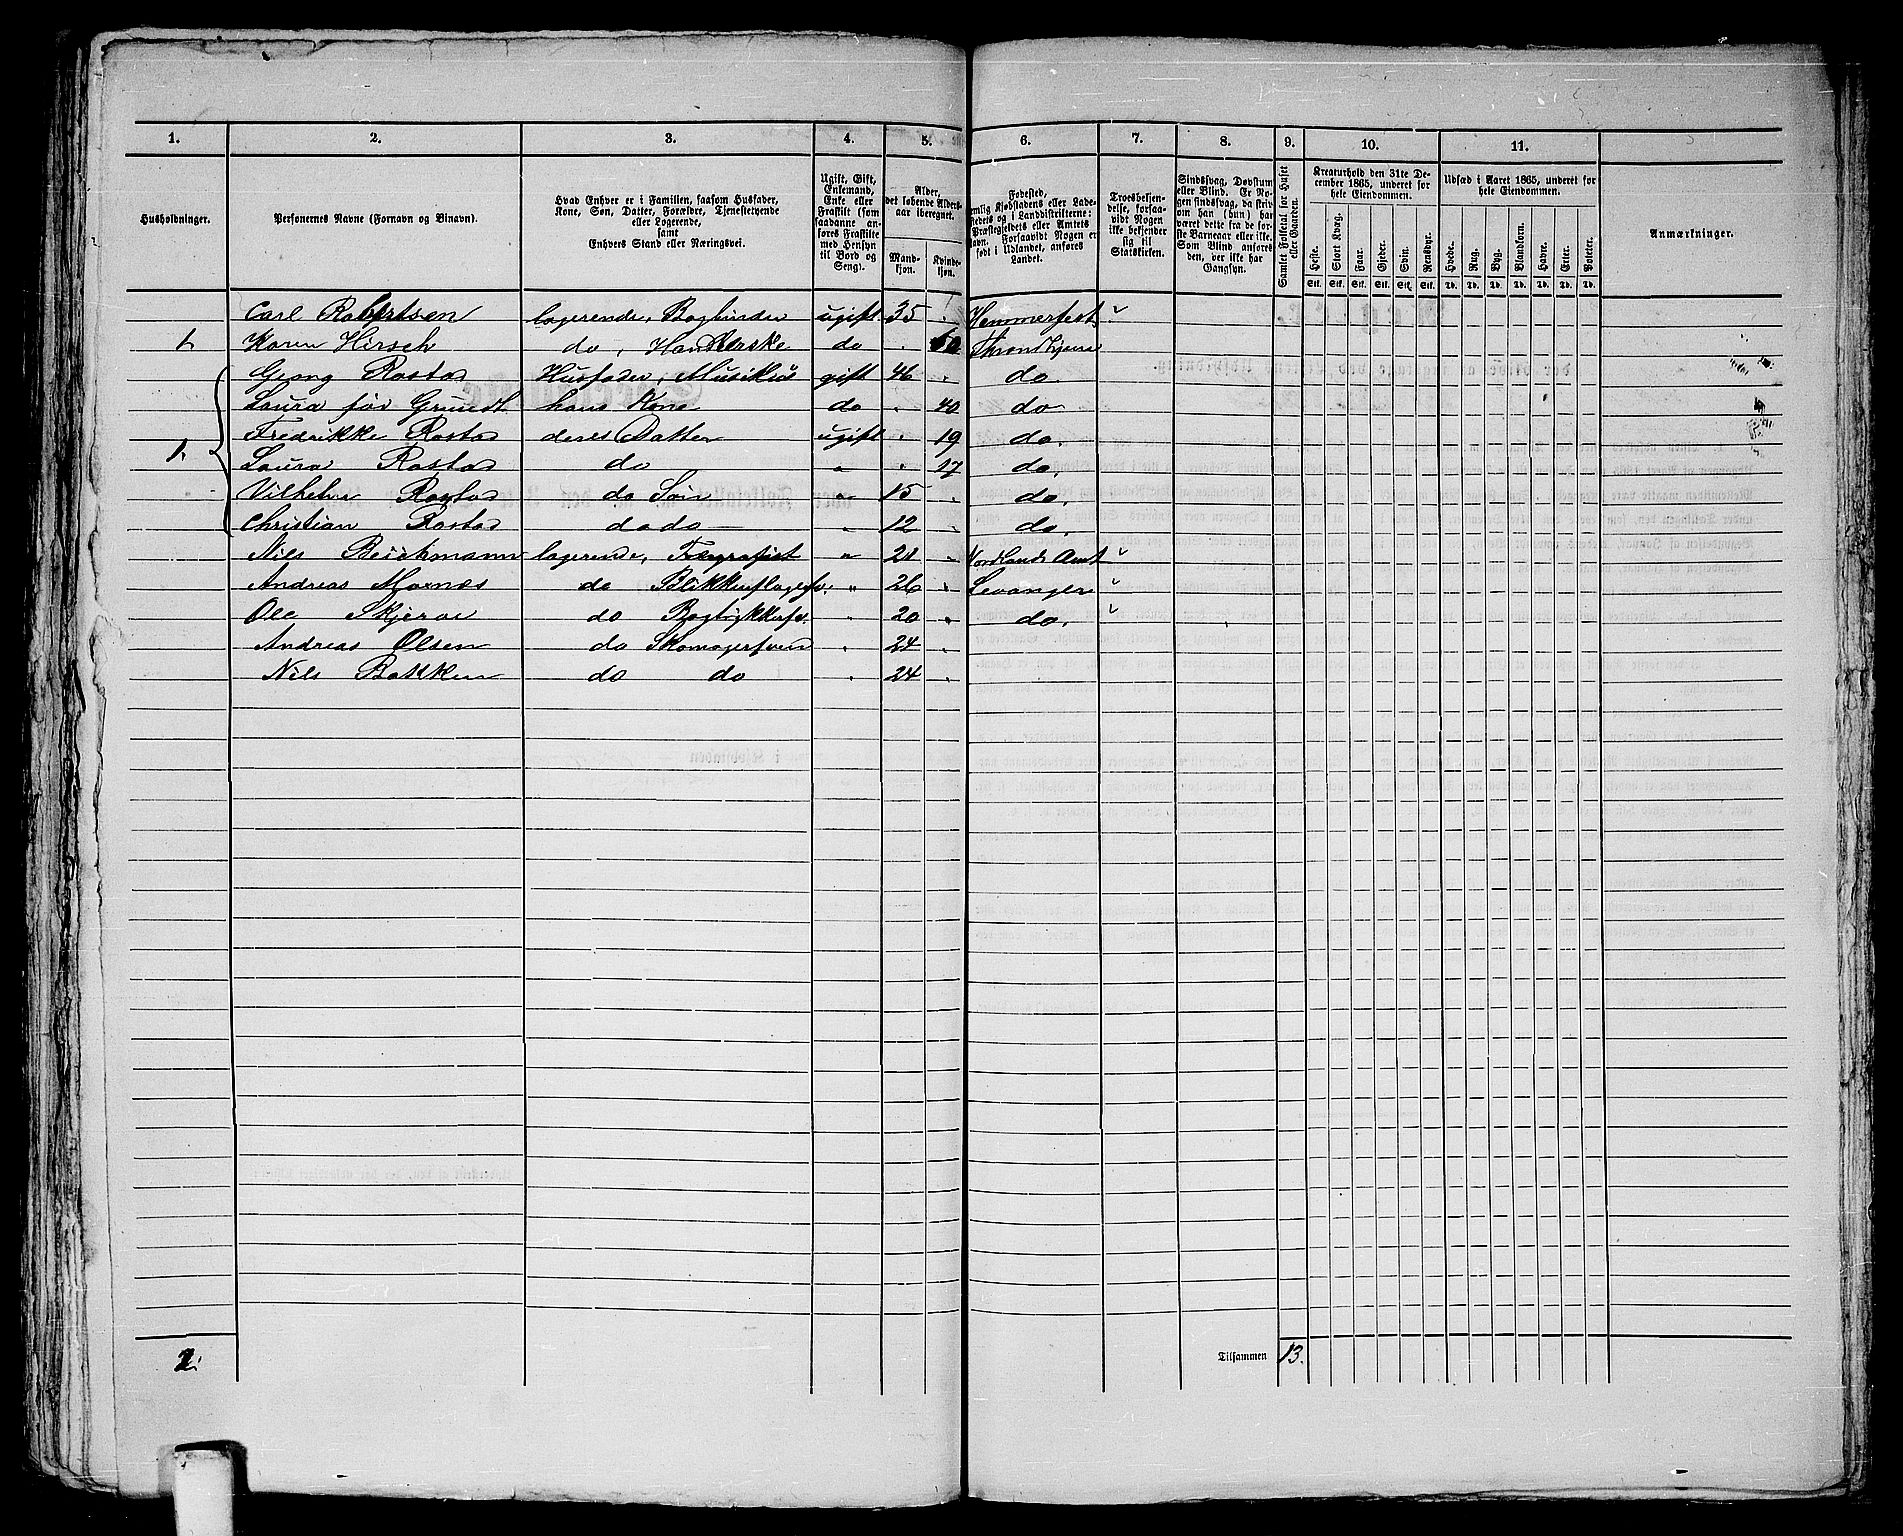 1. 2. 3. 4. 5. 6. 7. 8. 9. 10. 11.
Husholdninger.
Personernes Navne (Fornavn og Binavn).
Hvad Enhver er i Familien, saasom Husfader,
Kone, Søn, Datter, Forældre, Tjenestetyende
eller Logerende,
samt
Enhvers Stand eller Næringsvei.
Ugift, Gift,
Enkemand,
Enke eller
Fraskilt (som
saadanne an-
føres Fraskilte
med Hensyn
til Bord og
Seng).
Alder,
det løbende Alders-
aar iberegnet.
Mand-
kjøn.
Kvinde-
kjøn.
Fødested,
nemlig Kjøbstadens eller Lade-
stedets og i Landdistrikterne:
Præstegjeldets eller Amtets
Navn. Forsaavidt Nogen er
født i Udlandet, anføres
Landet.
Troesbekjen-
delse, forsaa-
vidt Nogen
ikke bekjender
sig til
Statskirken.
Sindssvag, Døvstum
eller Blind. Er No-
gen sindssvag, da skriv
om han (hun) har
været dette fra de før-
ste Barneaar eller ikke.
Som Blind anføres
den, der ikke har
Gangsyn.
Samlet Folketal for Huset
eller Gaarden.
Kreaturhold den 31te De-
cember 1865, underet for
hele Eiendommen.
Heste. Stort Kvæg. Faar. Gjeder. Svin. Rensdyr.
Stk. Stk. Stk. Stk. Stk. Stk.
Udsæd i Aaret 1865, underet for
hele Eiendommen.
Hvede. Rug. Byg. Blandkorn. Havre. Erter. Poteter.
Td. Td. Td. Td. Td. Td. Td.
Anmærkninger.
Carl Robertsen logerende, Bogbinder ugift 35 Hammerfest
1. Karen Hirsch do, do 50 Throndhjem
Georg Rostad Husfader, gift 46 do
Laura før Grundt hans Kone do 40 do
Fredrikke Rostad deres Datter ugift 19 do.
1. Laura Rostad do 17 do.
Vilhelm Rostad do Søn 15 do.
Christian Rostad do do 12 do.
Nils logerende, 21 Nordlands Amt
Andreas Moxnæs do 26 Levanger
Ole Skjerve do 20 do.
Andreas Olsen do Skomagersvend 24
Nils Bakken do do 24
2. Tilsammen 13.